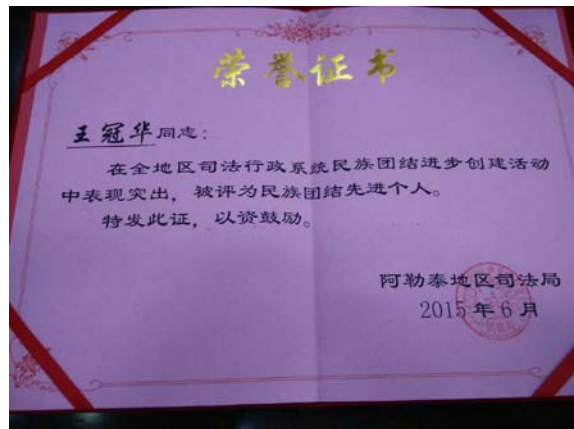 荣誉证书
王冠华同志：
在全地区司法行政系统民族团结进步创建活动
中表现突出，被评为民族团结先进个人。
特发此证，以资鼓励。
阿勒泰地区司法局
2015年6月